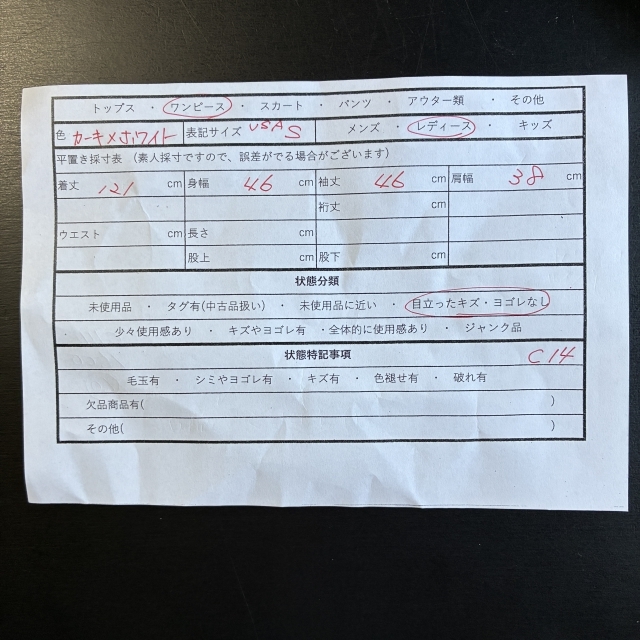 トップス ・ ワンピース ・ スカート ・ パンツ ・ アウター類 ・ その他
色 カーキ×ホワイト 表記サイズ USA S メンズ ・ レディース ・ キッズ
平置き採寸表 （素人採寸ですので、誤差がでる場合がございます）
着丈 121 cm 身幅 46 cm 袖丈 46 cm 肩幅 38 cm
裄丈 cm
ウエスト cm 長さ cm
股上 cm 股下 cm
状態分類
未使用品 ・ タグ有(中古品扱い) ・ 未使用品に近い ・ 目立ったキズ・ヨゴレなし
少々使用感あり ・ キズやヨゴレ有 ・全体的に使用感あり ・ ジャンク品
状態特記事項 C14
毛玉有 ・ シミやヨゴレ有 ・ キズ有 ・ 色褪せ有 ・ 破れ有
欠品商品有( )
その他( )